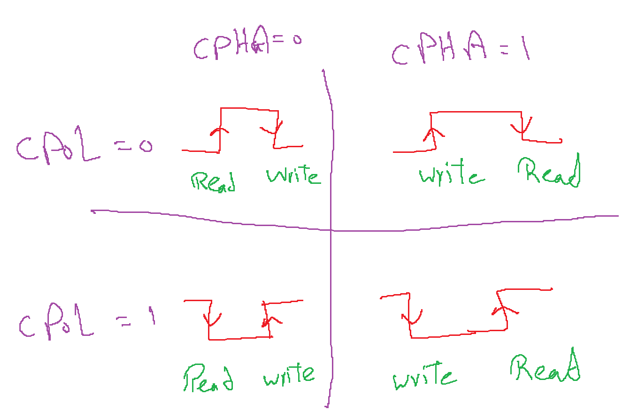 CPHA=0 CPHA=1
CPOL=0
Read write write Read
CPOL=1
Read write write Read